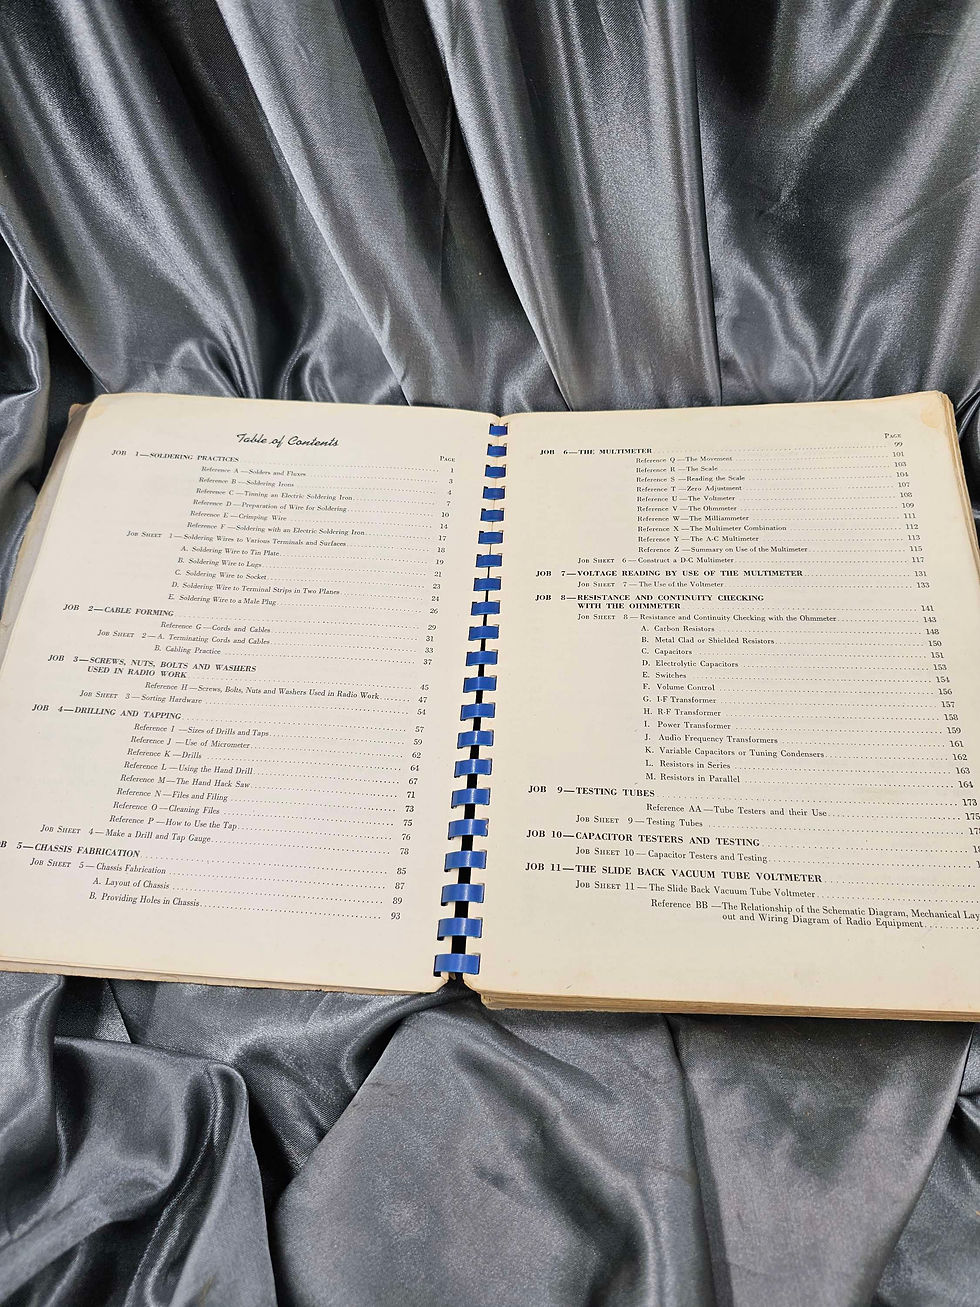 Table of Contents
PAGE
JOB 1—SOLDERING PRACTICES 1
Reference A —Solders and Fluxes 3
Reference B —Soldering Irons 4
Reference C —Tinning an Electric Soldering Iron 7
Reference D —Preparation of Wire for Soldering 10
Reference E —Crimping Wire 14
Reference F —Soldering with an Electric Soldering Iron 17
JOB SHEET 1—Soldering Wires to Various Terminals and Surfaces 18
A. Soldering Wire to Tin Plate 19
B. Soldering Wire to Lugs 21
C. Soldering Wire to Socket 23
D. Soldering Wire to Terminal Strips in Two Planes 24
E. Soldering Wire to a Male Plug 26
JOB 2—CABLE FORMING 29
Reference G —Cords and Cables 31
JOB SHEET 2—A. Terminating Cords and Cables 33
B. Cabling Practice 37
JOB 3—SCREWS, NUTS, BOLTS AND WASHERS
USED IN RADIO WORK 45
Reference H —Screws, Bolts, Nuts and Washers Used in Radio Work 47
JOB SHEET 3—Sorting Hardware 54
JOB 4—DRILLING AND TAPPING 57
Reference I —Sizes of Drills and Taps 59
Reference J —Use of Micrometer 62
Reference K —Drills 64
Reference L —Using the Hand Drill 67
Reference M—The Hand Hack Saw 71
Reference N —Files and Filing 73
Reference O —Cleaning Files 75
Reference P —How to Use the Tap 76
JOB SHEET 4—Make a Drill and Tap Gauge 78
B 5—CHASSIS FABRICATION 85
JOB SHEET 5—Chassis Fabrication 87
A. Layout of Chassis 89
B. Providing Holes in Chassis 93
PAGE
JOB 6—THE MULTIMETER 99
Reference Q —The Movement 101
Reference R —The Scale 103
Reference S —Reading the Scale 104
Reference T —Zero Adjustment 107
Reference U —The Voltmeter 108
Reference V —The Ohmmeter 109
Reference W—The Milliammeter 111
Reference X —The Multimeter Combination 112
Reference Y —The A-C Multimeter 113
Reference Z —Summary on Use of the Multimeter 115
JOB SHEET 6—Construct a D-C Multimeter 117
JOB 7—VOLTAGE READING BY USE OF THE MULTIMETER 131
JOB SHEET 7—The Use of the Voltmeter 133
JOB 8—RESISTANCE AND CONTINUITY CHECKING
WITH THE OHMMETER 141
JOB SHEET 8—Resistance and Continuity Checking with the Ohmmeter 143
A. Carbon Resistors 148
B. Metal Clad or Shielded Resistors 150
C. Capacitors 151
D. Electrolytic Capacitors 153
E. Switches 154
F. Volume Control 156
G. I-F Transformer 157
H. R-F Transformer 158
I. Power Transformer 159
J. Audio Frequency Transformers 161
K. Variable Capacitors or Tuning Condensers 162
L. Resistors in Series 163
M. Resistors in Parallel 164
JOB 9—TESTING TUBES 173
Reference AA—Tube Testers and their Use 175
JOB SHEET 9—Testing Tubes
JOB 10—CAPACITOR TESTERS AND TESTING
JOB SHEET 10—Capacitor Testers and Testing
JOB 11—THE SLIDE BACK VACUUM TUBE VOLTMETER
JOB SHEET 11—The Slide Back Vacuum Tube Voltmeter
Reference BB—The Relationship of the Schematic Diagram, Mechanical Lay
out and Wiring Diagram of Radio Equipment